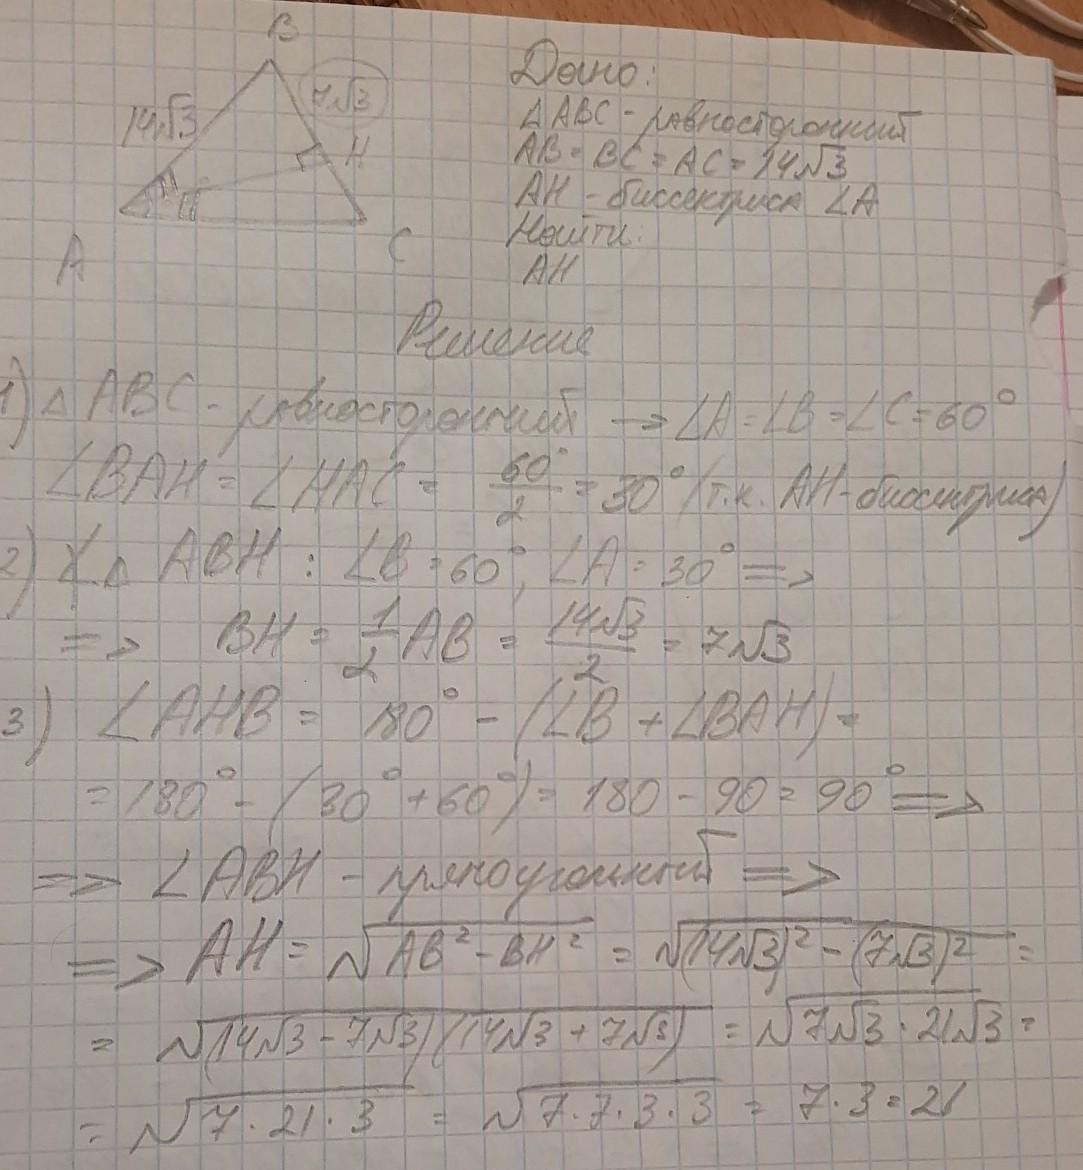 B
14√3
7√3
H
A
C
Дано:
△ABC - равносторонний
AB = BC = AC = 14√3
AH - биссектриса ∠A
Найти:
AH
Решение
1) △ ABC - равносторонний → ∠A = ∠B = ∠C = 60°
∠BAH = ∠HAC = 60°/2 = 30° (т.к. AH - биссектриса)
2) △ ABH : ∠B = 60°, ∠A = 30° =>
=> BH = 1/2 AB = 14√3/2 = 7√3
3) ∠AHB = 180° - (∠B + ∠BAH) =
= 180° - (30° + 60°) = 180 - 90 = 90° =>
=> ∠ABH - прямоугольный =>
=> AH = √(AB² - BH²) = √((14√3)² - (7√3)²) =
= √((14√3 - 7√3)(14√3 + 7√3)) = √(7√3 · 21√3) =
= √(7 · 21 · 3) = √(7 · 7 · 3 · 3) = 7 · 3 = 21